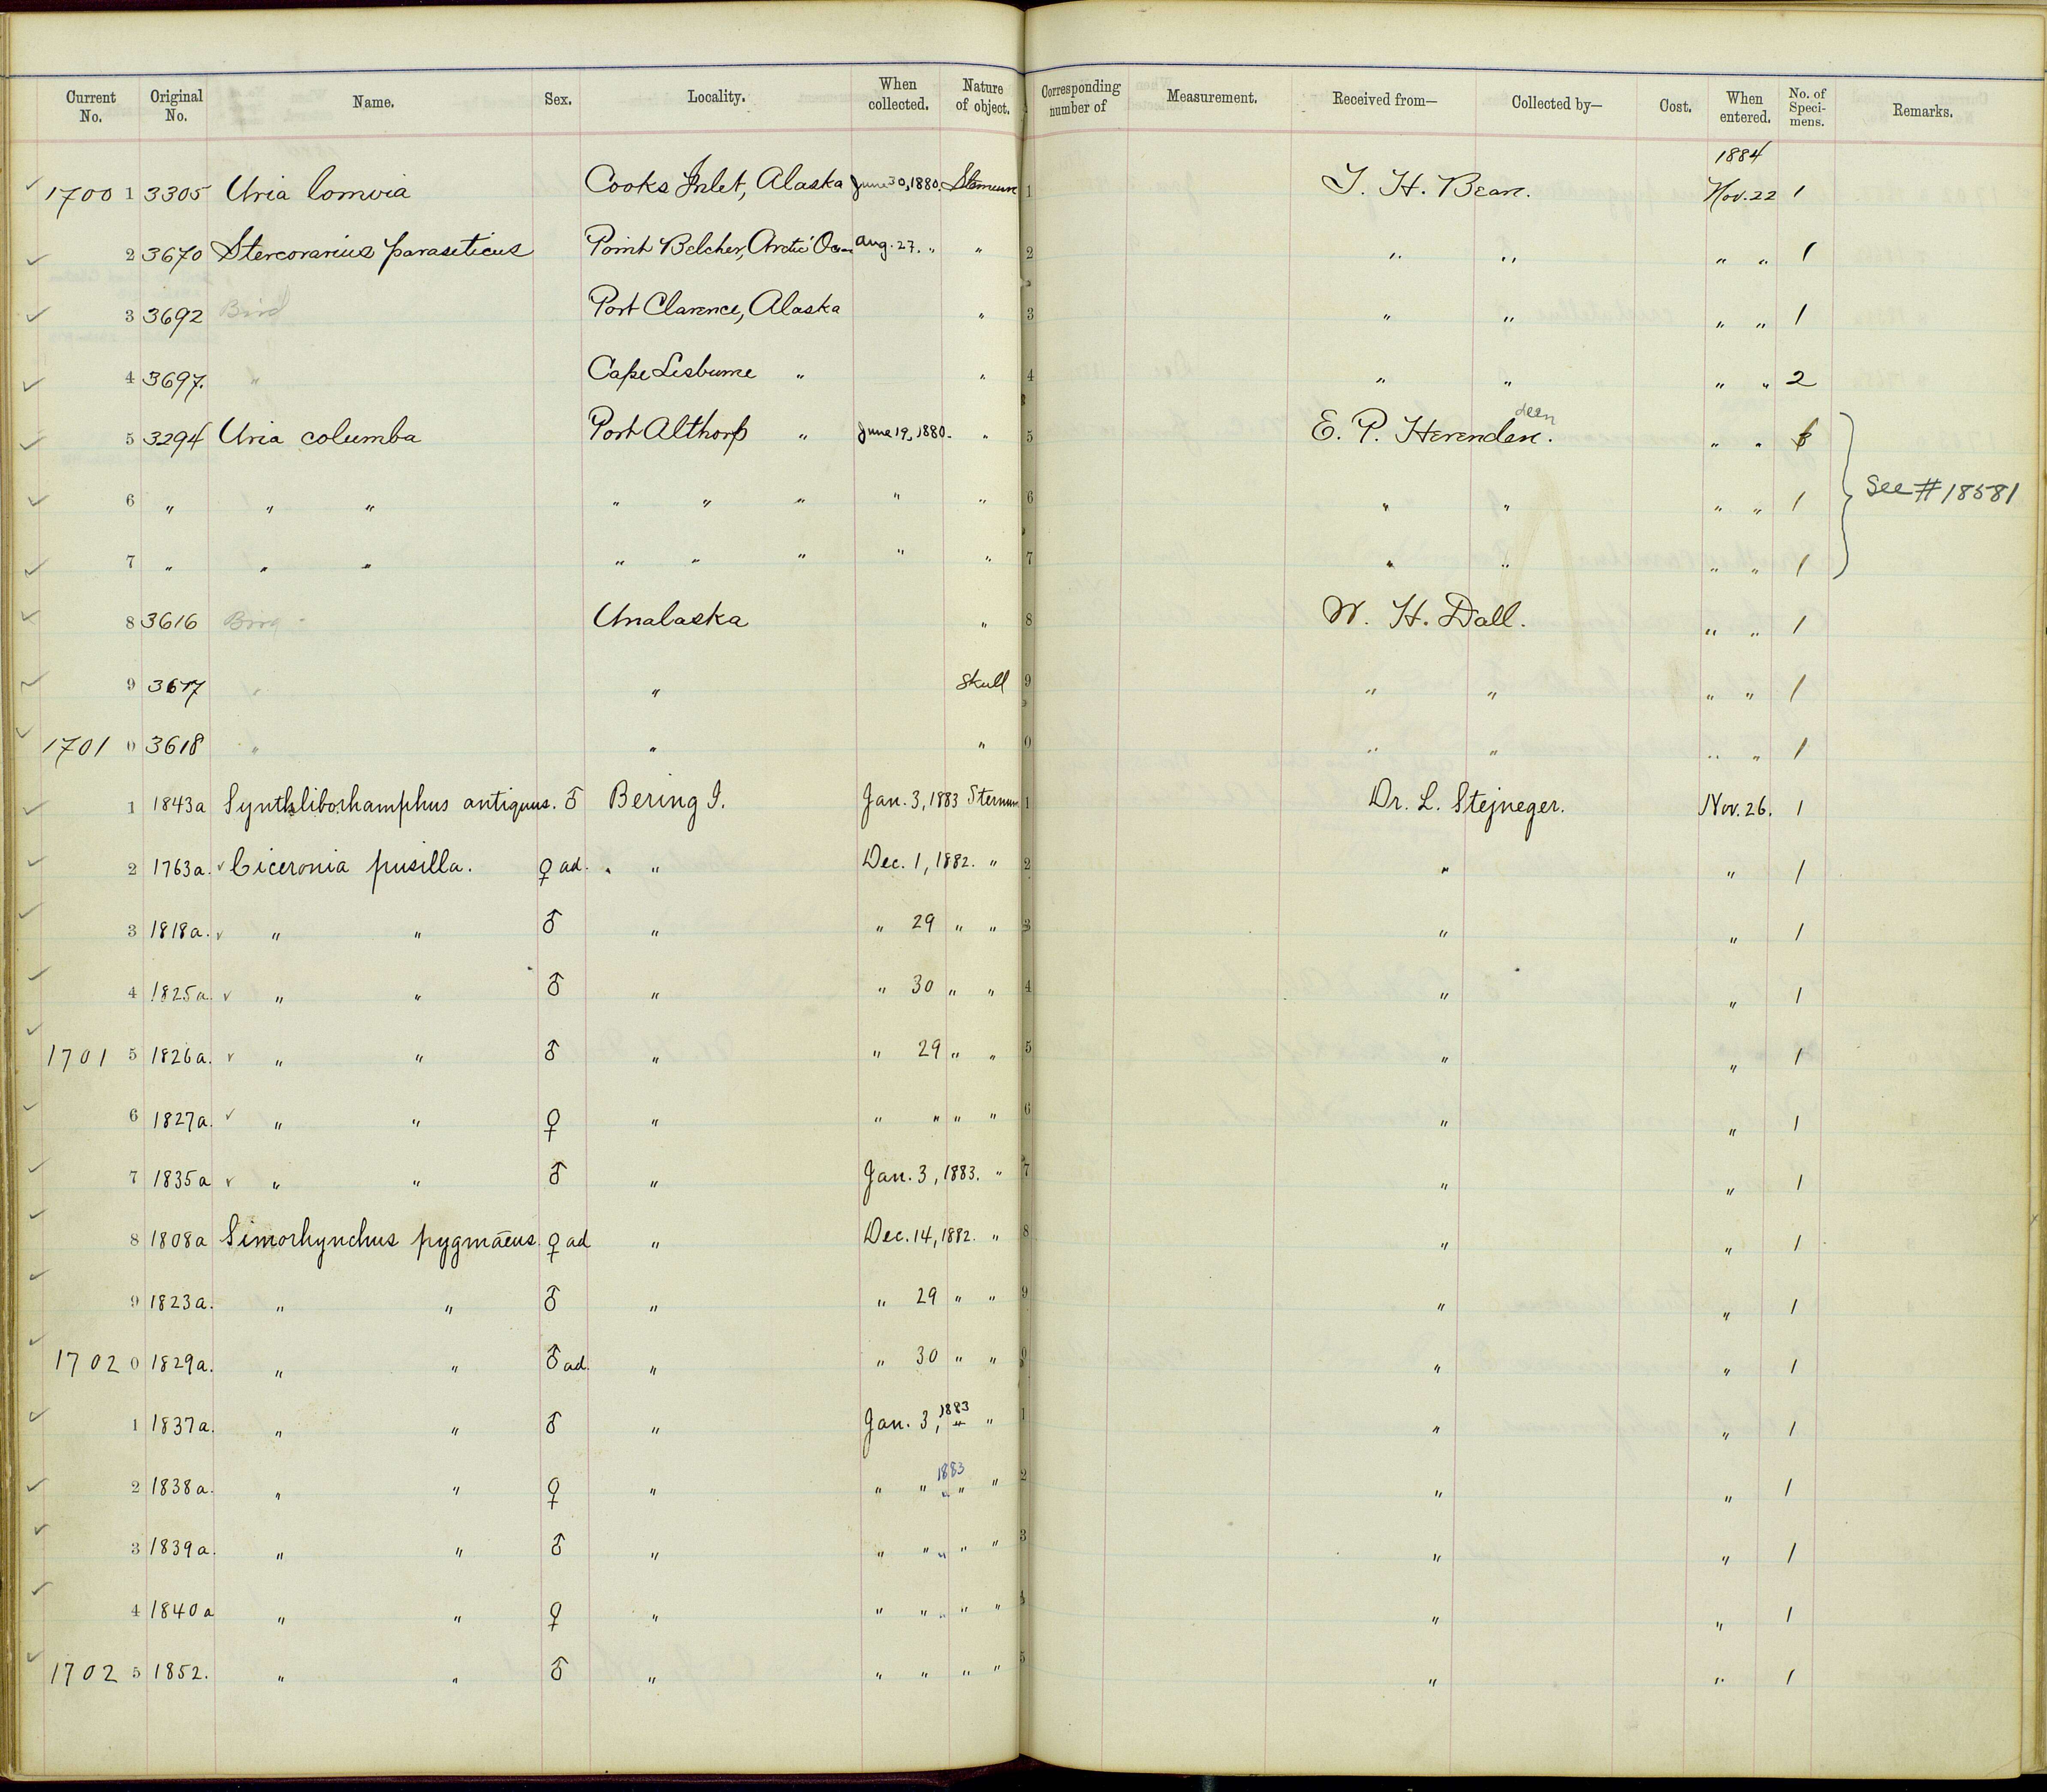 Current No. Original No. Name. Sex. Locality. When collected. Nature of object. Corresponding number of Measurement. Received from— Collected by— Cost. When entered. No. of Speci-mens. Remarks.
1884
1700 1 3305 Uria lomvia Cooks Inlet, Alaska June 30, 1880. Sternum 1 T. H. Bean. Nov. 22 1
2 3670 Stercorarius parasiticus Point Belcher, Arctic Ocean Aug. 27. " " 2 " " " " 1
3 3692 Bird Port Clarence, Alaska " 3 " " " " 1
4 3697. " Cape Lisburne " " 4 " " " " 2
5 3294 Uria columba Port Althorp " June 19, 1880. " 5 E. P. Herenden. deen " "
See # 18581
6 " " " " " " " " 6 " " " " 1
7 " " " " " " " " 7 " " " " 1
8 3616 Bird Unalaska " 8 W. H. Dall. " " 1
9 3617 " " Skull 9 " " " " 1
1701 0 3618 " " " 0 " " " " 1
1 1843a Synthliborhamphus antiquus. ♂ Bering I. Jan. 3, 1883 Sternum 1 Dr. L. Stejneger. Nov. 26. 1
2 1763a. ✓ Ciceronia pusilla. ♀ ad. " Dec. 1, 1882. " 2 " " 1
3 1818a. ✓ " " ♂ " " 29 " " 3 " " 1
4 1825a. ✓ " " ♂ " " 30 " " 4 " " 1
1701 5 1826a. ✓ " " ♂ " " 29 " " 5 " " 1
6 1827a. ✓ " " ♀ " " " " " 6 " " 1
7 1835a ✓ " " ♂ " Jan. 3, 1883. " 7 " " 1
8 1808a Simorhynchus pygmæus. ♀ ad " Dec. 14, 1882. " 8 " " 1
9 1823a. " " ♂ " " 29 " " 9 " " 1
1702 0 1829a. " " ♂ ad. " " 30 " " 0 " " 1
1 1837a. " " ♂ " Jan. 3, 1883 " " 1 " " 1
2 1838a. " " ♀ " " " 1883 " " 2 " " 1
3 1839a. " " ♂ " " " " " " 3 " " 1
4 1840a " " ♀ " " " " " " 4 " " 1
1702 5 1852. " " ♂ " " " " " 5 " " 1